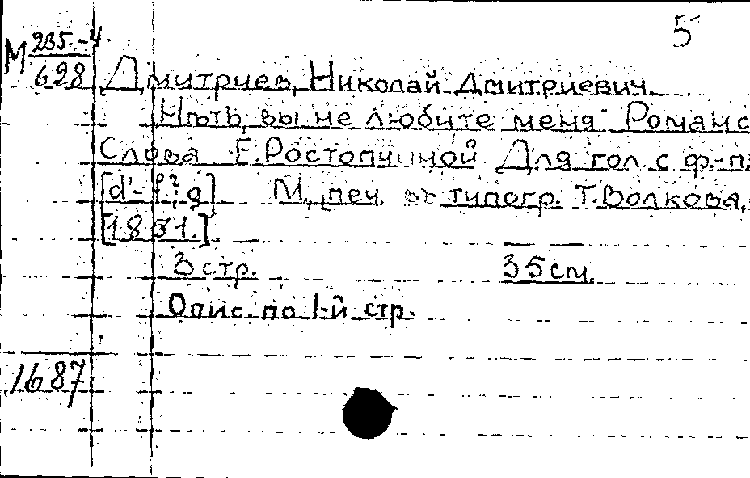 5
М 235-4
628
Дмитриев, Николай Дмитриевич.
Нѣтъ, вы не любите меня. Романс
Слова Е. Ростопчиной Для гол. с ф.-п
[d'-f²g] М., печ. въ типогр. Т. Волкова,
[18 1.]
3 стр. 35 см.
Опис. по 1-й стр.
1687